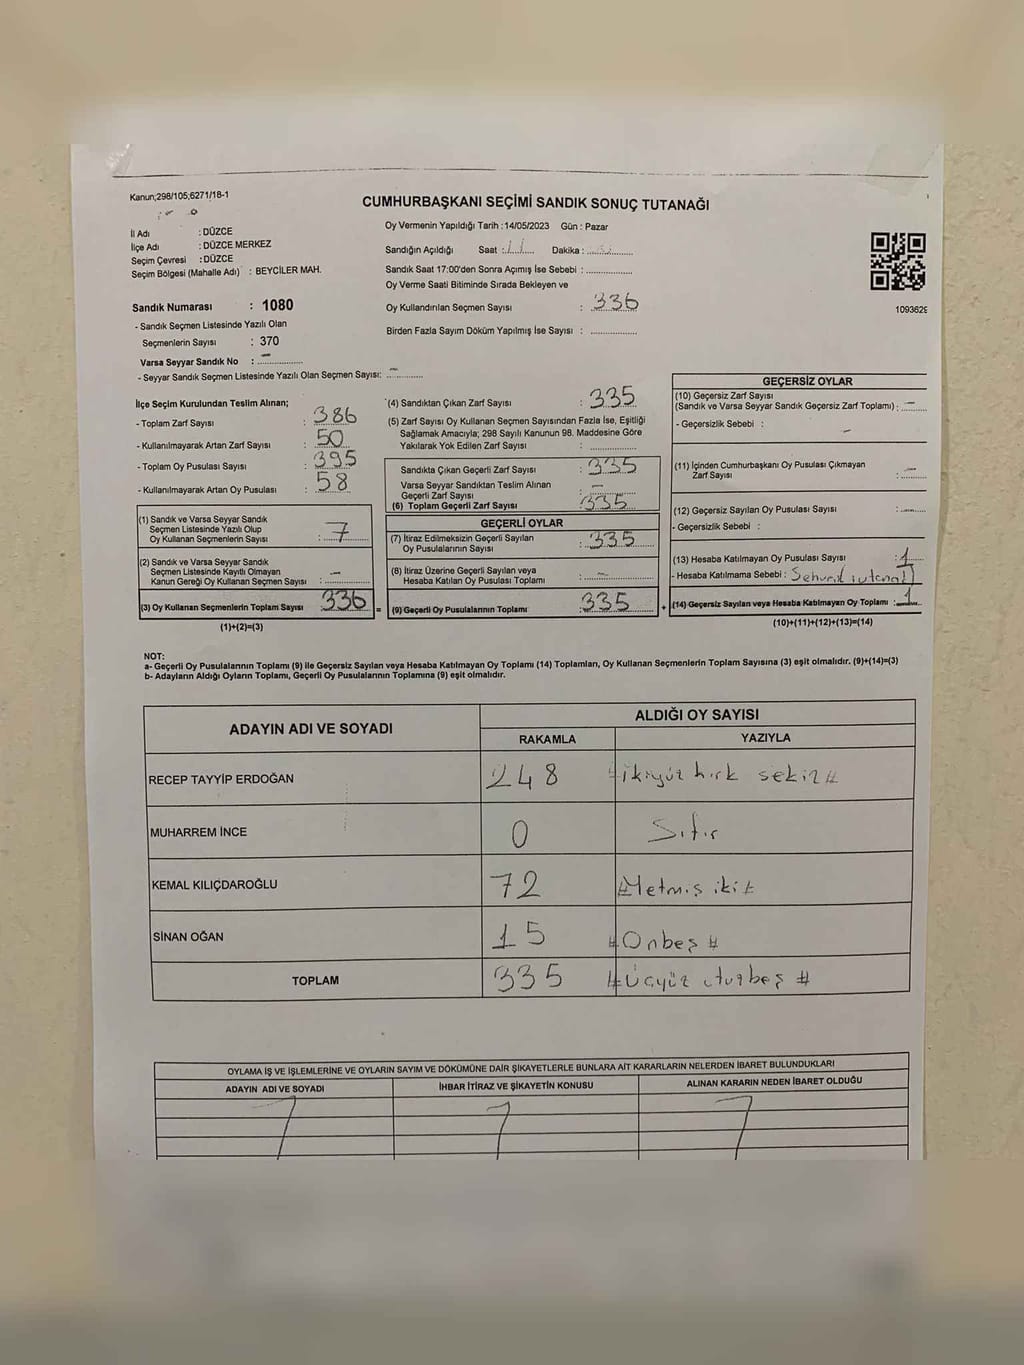 Kanun;298/105;6271/18-1
CUMHURBAŞKANI SEÇİMİ SANDIK SONUÇ TUTANAĞI
İl Adı : DÜZCE
İlçe Adı : DÜZCE MERKEZ
Seçim Çevresi : DÜZCE
Seçim Bölgesi (Mahalle Adı) : BEYCİLER MAH.
Sandık Numarası : 1080
- Sandık Seçmen Listesinde Yazılı Olan
Seçmenlerin Sayısı : 370
Varsa Seyyar Sandık No : –
- Seyyar Sandık Seçmen Listesinde Yazılı Olan Seçmen Sayısı: –
Oy Vermenin Yapıldığı Tarih :14/05/2023 Gün : Pazar
Sandığın Açıldığı Saat : Dakika :
Sandık Saat 17:00'den Sonra Açımış İse Sebebi :
Oy Verme Saati Bitiminde Sırada Bekleyen ve
Oy Kullandırılan Seçmen Sayısı : 336
Birden Fazla Sayım Döküm Yapılmış İse Sayısı :
1093629
İlçe Seçim Kurulundan Teslim Alınan;
- Toplam Zarf Sayısı : 386
- Kullanılmayarak Artan Zarf Sayısı : 50
- Toplam Oy Pusulası Sayısı : 395
- Kullanılmayarak Artan Oy Pusulası : 58
(1) Sandık ve Varsa Seyyar Sandık
Seçmen Listesinde Yazılı Olup
Oy Kullanan Seçmenlerin Sayısı : 7
(2) Sandık ve Varsa Seyyar Sandık
Seçmen Listesinde Kayıtlı Olmayan
Kanun Gereği Oy Kullanan Seçmen Sayısı : –
(3) Oy Kullanan Seçmenlerin Toplam Sayısı : 336 =
(1)+(2)=(3)
(4) Sandıktan Çıkan Zarf Sayısı : 335
(5) Zarf Sayısı Oy Kullanan Seçmen Sayısından Fazla İse, Eşitliği
Sağlamak Amacıyla; 298 Sayılı Kanunun 98. Maddesine Göre
Yakılarak Yok Edilen Zarf Sayısı :
Sandıkta Çıkan Geçerli Zarf Sayısı : 335
Varsa Seyyar Sandıktan Teslim Alınan
Geçerli Zarf Sayısı : –
(6) Toplam Geçerli Zarf Sayısı : 335
GEÇERLİ OYLAR
(7) İtiraz Edilmeksizin Geçerli Sayılan
Oy Pusulalarının Sayısı : 335
(8) İtiraz Üzerine Geçerli Sayılan veya
Hesaba Katılan Oy Pusulası Toplamı : –
(9) Geçerli Oy Pusulalarının Toplamı : 335 +
GEÇERSİZ OYLAR
(10) Geçersiz Zarf Sayısı
(Sandık ve Varsa Seyyar Sandık Geçersiz Zarf Toplamı) : –
- Geçersizlik Sebebi : –
(11) İçinden Cumhurbaşkanı Oy Pusulası Çıkmayan
Zarf Sayısı : –
(12) Geçersiz Sayılan Oy Pusulası Sayısı : –
- Geçersizlik Sebebi :
(13) Hesaba Katılmayan Oy Pusulası Sayısı : 1
- Hesaba Katılmama Sebebi :
(14) Geçersiz Sayılan veya Hesaba Katılmayan Oy Toplamı : 1
(10)+(11)+(12)+(13)=(14)
NOT:
a- Geçerli Oy Pusulalarının Toplamı (9) ile Geçersiz Sayılan veya Hesaba Katılmayan Oy Toplamı (14) Toplamları, Oy Kullanan Seçmenlerin Toplam Sayısına (3) eşit olmalıdır. (9)+(14)=(3)
b- Adayların Aldığı Oyların Toplamı, Geçerli Oy Pusulalarının Toplamına (9) eşit olmalıdır.
ADAYIN ADI VE SOYADI ALDIĞI OY SAYISI
RAKAMLA YAZIYLA
RECEP TAYYİP ERDOĞAN 248 #ikiyüz kırk sekiz#
MUHARREM İNCE 0 Sıfır
KEMAL KILIÇDAROĞLU 72 #Yetmiş iki#
SİNAN OĞAN 15 #Onbeş#
TOPLAM 335 #Üçyüz otuzbeş#
OYLAMA İŞ VE İŞLEMLERİNE VE OYLARIN SAYIM VE DÖKÜMÜNE DAİR ŞİKAYETLERLE BUNLARA AİT KARARLARIN NELERDEN İBARET BULUNDUKLARI
ADAYIN ADI VE SOYADI İHBAR İTİRAZ VE ŞİKAYETİN KONUSU ALINAN KARARIN NEDEN İBARET OLDUĞU